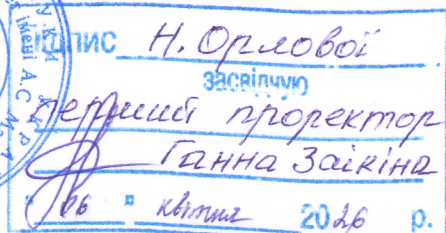 Підпис Н. Орлової
засвідчую
перший проректор
Ганна Заікіна
"06" квітня 2026 р.